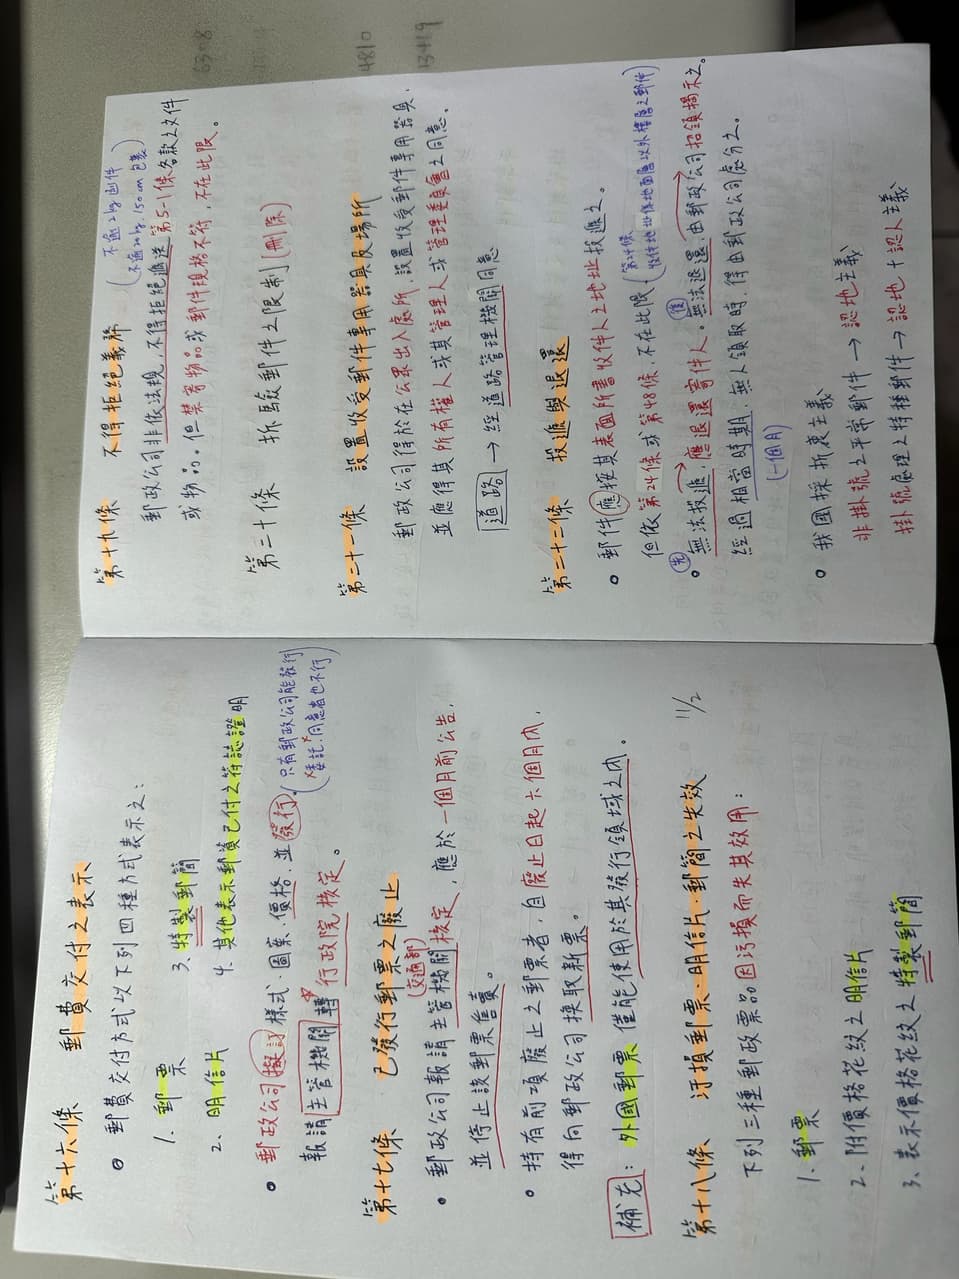 第十六條 郵費交付之表示
郵費交付方式以下列四種方式表示之：
1. 郵票
2. 明信片
3. 特製郵簡
4. 其他表示郵資已付之符誌證明
郵政公司擬訂樣式、圖案、價格、並發行，
(只有郵政公司能發行
委託、同意者也不行)
報請主管機關轉行政院核定。
第十七條 已發行郵票之廢止
(交通部)
郵政公司報請主管機關核定，應於一個月前公告，
並停止該郵票售賣。
持有前項廢止之郵票者，自廢止日起六個月內，
得向郵政公司換取新票。
補充：外國郵票 僅能使用於其發行領域之內。
第十八條 汙損郵票、明信片、郵簡之失效 11/2
下列三種郵政票品因污損而失其效用：
1. 郵票
2. 附價格花紋之明信片
3. 表示價格花紋之特製郵簡
第十九條 不得拒絕義務
(不逾2kg函件
不逾20kg、150cm包裹)
郵政公司非依法規，不得拒絕遞送第5-1條各款之文件
或物品。但禁寄物品或郵件規格不符，不在此限。
第二十條 拆驗郵件之限制(刪除)
第二十一條 設置收受郵件專用器具及場所
郵政公司得於在公眾出入處所，設置收受郵件專用器具，
並應得其所有權人或其管理人或管理委員會之同意。
道路→經道路管理機關同意
第二十二條 投遞與退還
郵件應按其表面所書收件人之地址投遞之。
但依第24條或第48條，不在此限
(第24條
收件地址係地面層以外樓層之郵件)
先 後
無法投遞，應退還寄件人。無法退還，由郵政公司招領揭示之。
經過相當時期，無人領取時，得由郵政公司處分之。
(一個月)
我國採折衷主義
非掛號之平常郵件→認地主義
掛號處理之特種郵件→認地十認人主義
6308
4810
13419